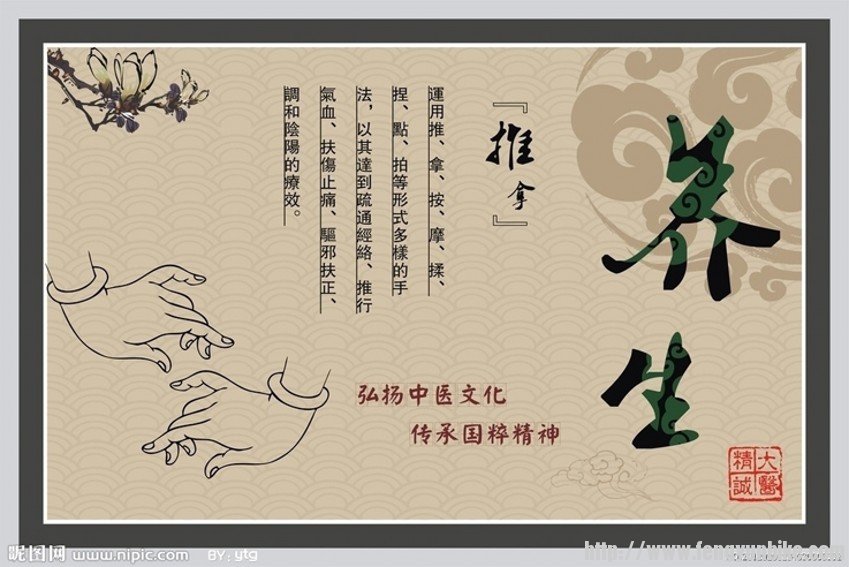 养生
『推拿』
運用推、拿、按、摩、揉、
捏、點、拍等形式多樣的手
法，以其達到疏通經絡、推行
氣血、扶傷止痛、驅邪扶正、
調和陰陽的療效。
弘扬中医文化
传承国粹精神
大醫
精誠
昵图网 www.nipic.com BY:ytg